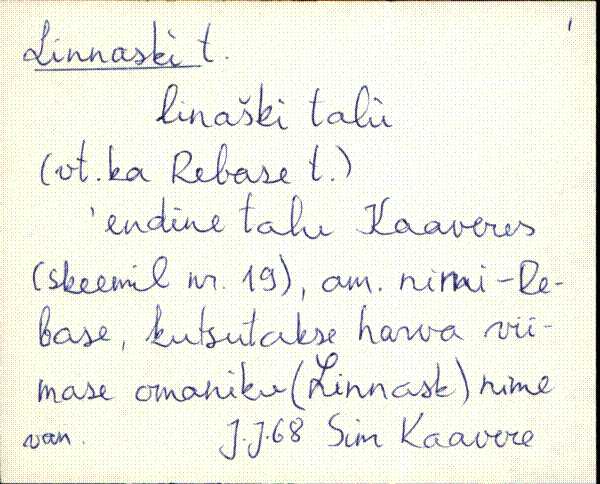 Linnaski t.
linaški talu
(vt. ka Rebase t.)
'endine talu Kaaveres
(skeemil nr. 19), am. nimi-Re-
base, kutsutakse harva vii-
mase omaniku (Linnask) nime
van. J.J.68 Sim Kaavere